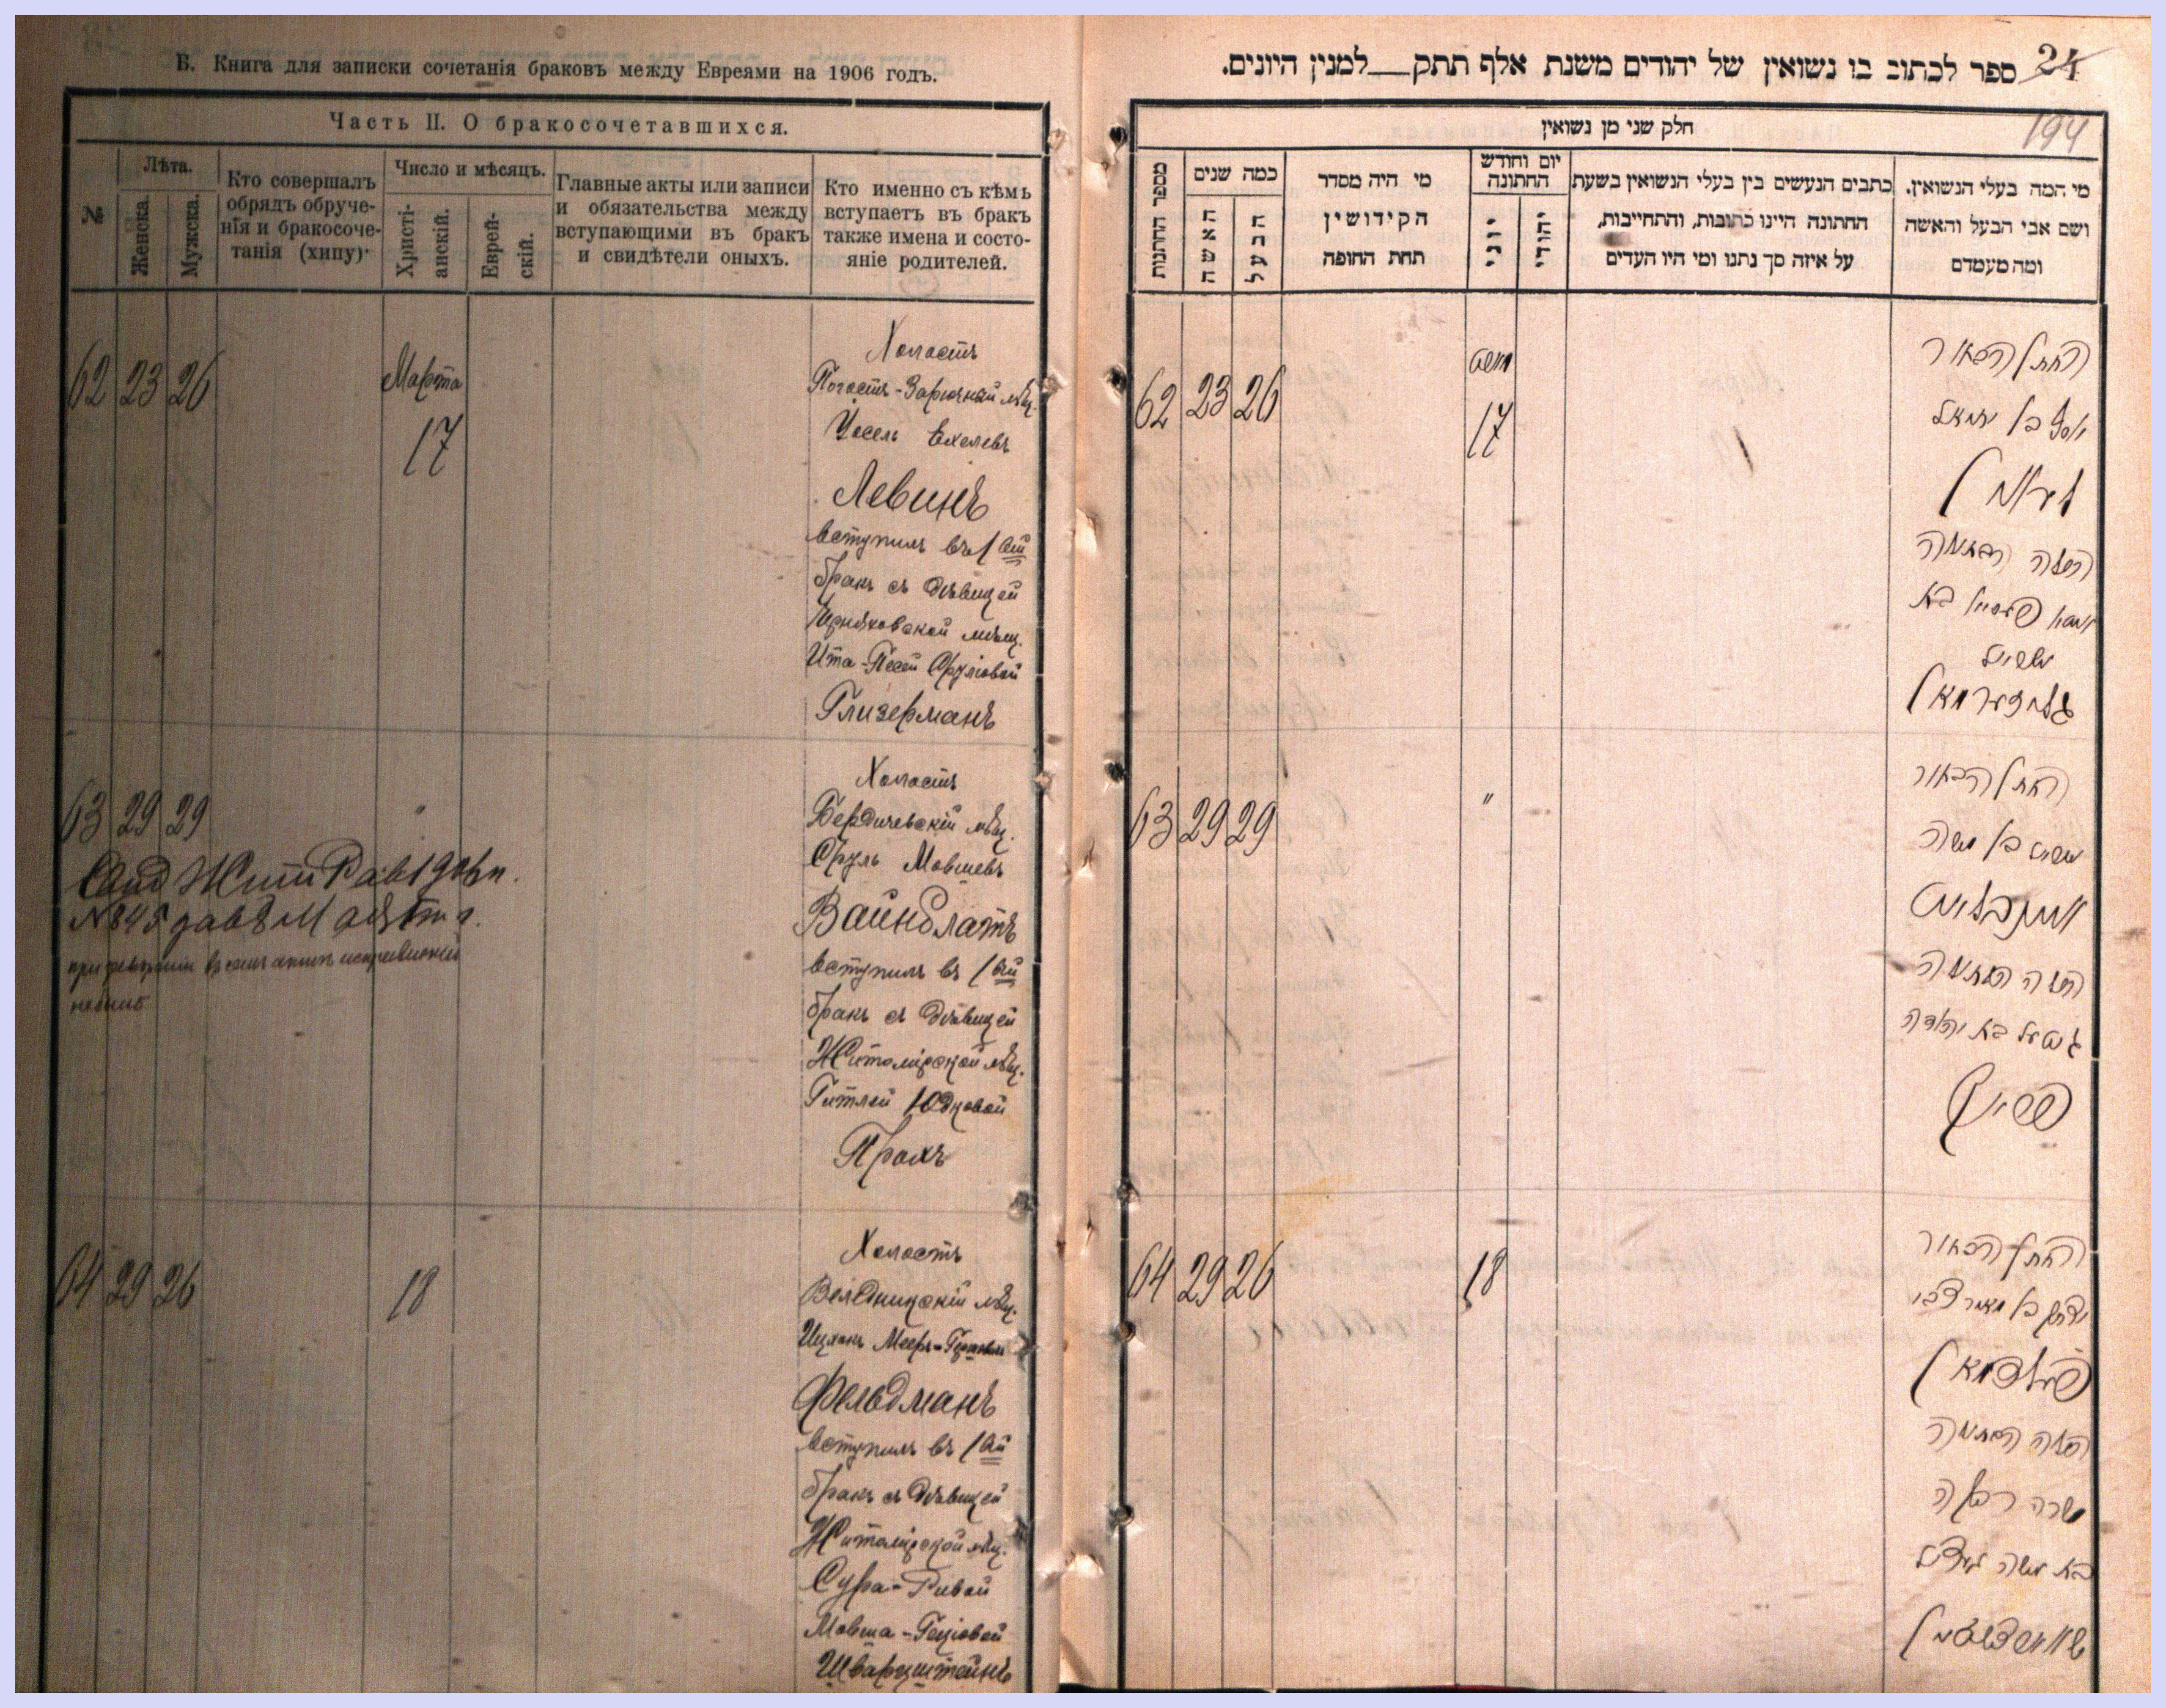 Б. Книга для записки сочетанія браковъ между Евреями на 1906 годъ.
Часть II. О бракосочетавшихся.
№
Лѣта.
Женска.
Мужска.
Кто совершалъ
обрядъ обруче-
нія и бракосоче-
танія (хипу)
Число и мѣсяцъ.
Христі-
анскій.
Еврей-
скій.
Главные акты или записи
и обязательства между
вступающими въ бракъ
и свидѣтели оныхъ.
Кто именно съ кѣмъ
вступаетъ въ бракъ
также имена и состо-
яніе родителей.
62 23 26
Марта
17
Холостъ
Погостъ-Зарѣчный мѣщ.
Іосель Ехелевъ
Левинъ
вступилъ въ 1ый
бракъ съ дѣвицей
Черняховской мѣщ.
Ита-Песей Сруліовой
Глизерманъ
63 29 29
"
Холостъ
Бердичевскій мѣщ.
Сруль Мовшевъ
Вайнблатъ
вступилъ въ 1ый
бракъ съ дѣвицей
Житомірской мѣщ.
Гитлей Юдковой
Прахъ
64 29 26
18
Холостъ
Веледницкій мѣщ.
Ицхокъ Мееръ-
Фельдманъ
вступилъ въ 1ый
бракъ съ дѣвицей
Житомірской мѣщ.
Сура-Ривой
Мовша-Гецовой
Шварцштейнъ
24
ספר לכתוב בו נשואין של יהודים משנת אלף תתק__למנין היונים.
194
חלק שני מן נשואין
מספר החתנות
כמה שנים
האשה
הבעל
מי היה מסדר
הקידושין
תחת החופה
יום וחודש
החתונה
יוני
יהודי
כתבים הנעשים בין בעלי הנשואין בשעת
החתונה היינו כתובות, והתחייבות,
על איזה סך נתנו ומי היו העדים
מי המה בעלי הנשואין.
ושם אבי הבעל והאשה
ומה מעמדם
62 23 26
מארט
17
החתן הבאור
יוסף בן
לעווין
הכלה הבתולה
בת
ישראל
גליזערמאן
63 29 29
"
החתן הבאור
ישראל בן משה
וויינבלאט
הכלה הבתולה
גיטל בת יהודה
64 29 26
18
החתן הבאור
יצחק בן מאיר צבי
פעלדמאן
הכלה הבתולה
שרה רבקה
בת משה